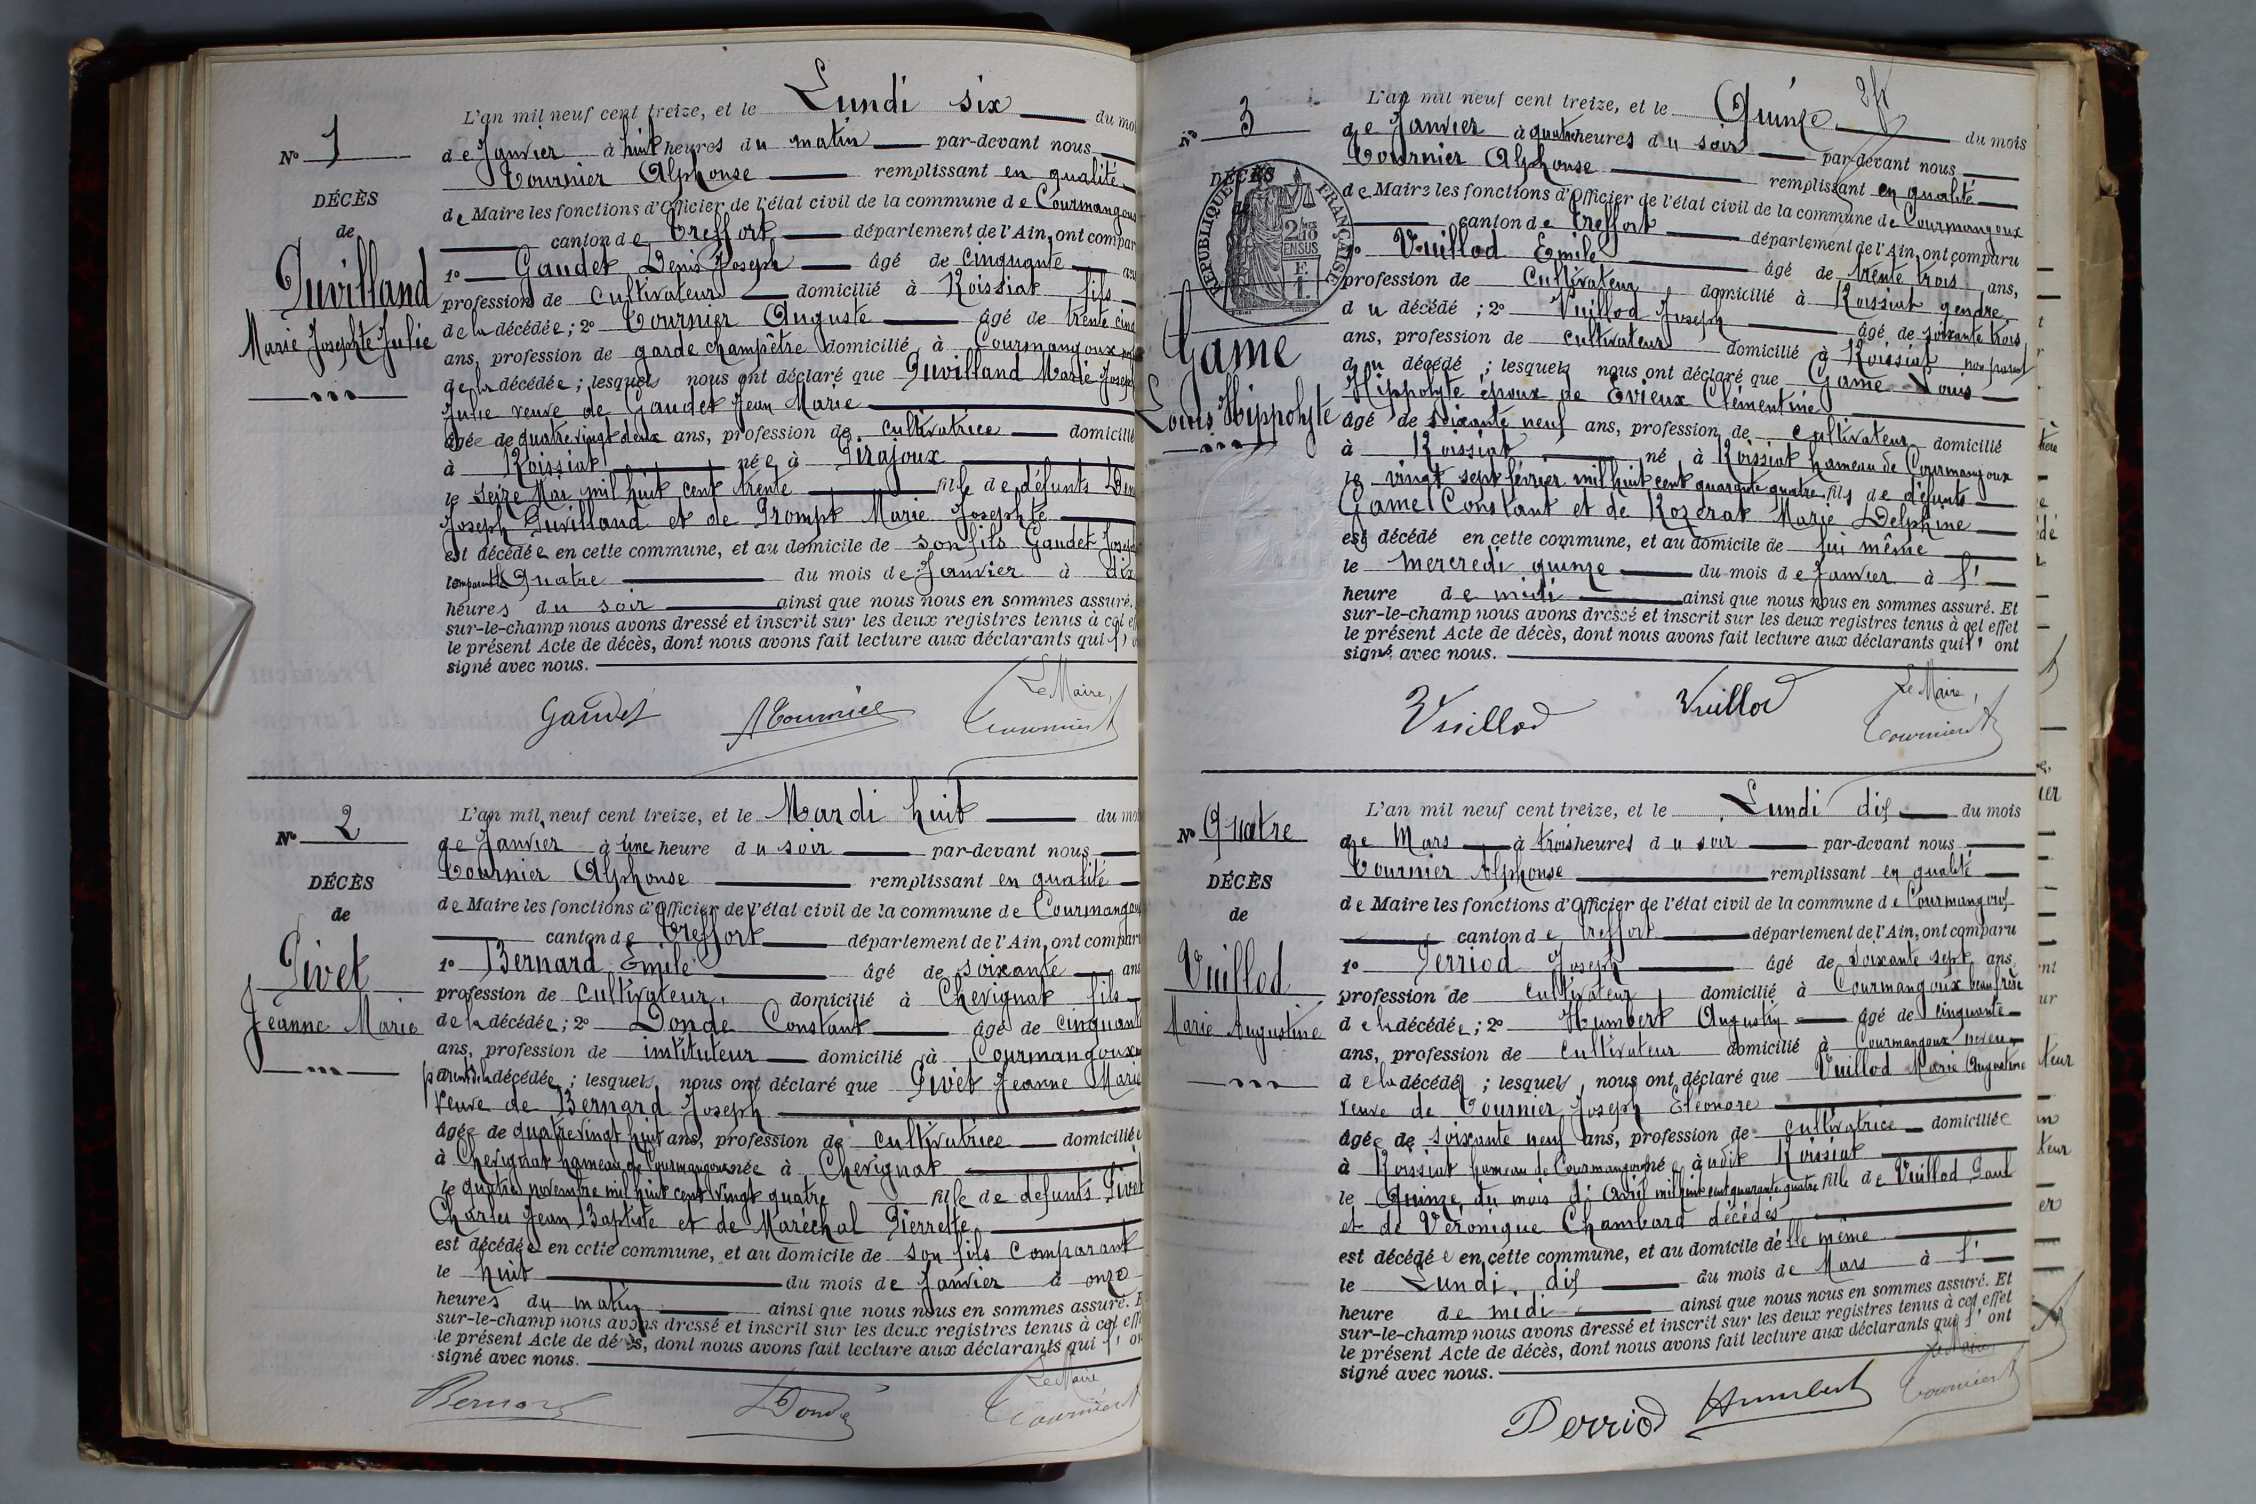 L'an mil neuf cent treize, et le Lundi six du moi
N° 1
de Janvier à huit heures du matin par-devant nous
Tournier Alphonse remplissant en qualité
DÉCÈS
de Maire les fonctions d'Officier de l'état civil de la commune de Courmangoux
de
canton de Treffort département de l'Ain, ont compar
Puvilland
1° Gaudet Denis Joseph âgé de cinquante ans
profession de cultivateur domicilié à Roissiat fils
Marie Josephte Julie
de la décédée ; 2° Tournier Auguste âgé de trente cinq
ans, profession de garde champêtre domicilié à Courmangoux
de la décédée ; lesquels nous ont déclaré que Puvilland Marie Joseph
Julie veuve de Gaudet Jean Marie
âgée de quatre vingt deux ans, profession de cultivatrice domicilié
à Roissiat née à Pirajoux
le seize Mai mil huit cent trente fille de défunts Den
Joseph Puvilland et de Prompt Marie Josephte
est décédée en cette commune, et au domicile de son fils Gaudet Joseph
comparant le Quatre du mois de Janvier à dix
heures du soir ainsi que nous nous en sommes assuré.
sur-le-champ nous avons dressé et inscrit sur les deux registres tenus à cet eff
le présent Acte de décès, dont nous avons fait lecture aux déclarants qui l' o
signé avec nous.
Gaudet ATournier Le Maire, Tournier A
L'an mil neuf cent treize, et le Mardi huit du moi
N° 2
de Janvier à une heure du soir par-devant nous
Tournier Alphonse remplissant en qualité
DÉCÈS
de Maire les fonctions d'Officier de l'état civil de la commune de Courmangou
de
canton de Treffort département de l'Ain, ont compar
Pivet
1° Bernard Emile âgé de soixante ans
profession de cultivateur domicilié à Chevignat fils
Jeanne Marie
de la décédée ; 2° Donde Constant âgé de cinquant
ans, profession de instituteur domicilié à Courmangoux
parent de la décédée ; lesquels nous ont déclaré que Pivet Jeanne Marie
veuve de Bernard Joseph
âgée de quatre vingt huit ans, profession de cultivatrice domiciliée
à Chevignat hameau de Courmangoux née à Chevignat
le quatre novembre mil huit cent vingt quatre fille de défunts Pivet
Charles Jean Baptiste et de Maréchal Pierrette
est décédée en cette commune, et au domicile de son fils comparant
le huit du mois de Janvier à onze
heures du matin ainsi que nous nous en sommes assuré. E
sur-le-champ nous avons dressé et inscrit sur les deux registres tenus à cet eff
le présent Acte de décès, dont nous avons fait lecture aux déclarants qui l' on
signé avec nous.
Bernard Donde Le Maire Tournier A
L'an mil neuf cent treize, et le Quinze du mois
N° 3
de Janvier à quatre heures du soir par-devant nous
Tournier Alphonse remplissant en qualité
DÉCÈS
de Maire les fonctions d'Officier de l'état civil de la commune de Courmangoux
RÉPUBLIQUE FRANÇAISE
canton de Treffort département de l'Ain, ont comparu
1° Vuillod Emile âgé de trente trois ans,
profession de cultivateur domicilié à Roissiat gendre
du décédé ; 2° Vuillod Joseph âgé de soixante trois
Game
ans, profession de cultivateur domicilié à Roissiat non parent
du décédé ; lesquels nous ont déclaré que Game Louis
Louis Hippolyte
Hippolyte époux de Evieux Clémentine
âgé de soixante neuf ans, profession de cultivateur domicilié
à Roissiat né à Roissiat hameau de Courmangoux
le vingt sept février mil huit cent quarante quatre fils de défunts
Game Constant et de Rozerat Marie Delphine
est décédé en cette commune, et au domicile de lui même
le mercredi quinze du mois de Janvier à l'
heure de midi ainsi que nous nous en sommes assuré. Et
sur-le-champ nous avons dressé et inscrit sur les deux registres tenus à cet effet
le présent Acte de décès, dont nous avons fait lecture aux déclarants qui l' ont
signé avec nous.
Vuillod Vuillod Le Maire, Tournier A
L'an mil neuf cent treize, et le Lundi dix du mois
N° Quatre
de Mars à trois heures du soir par-devant nous
Tournier Alphonse remplissant en qualité
DÉCÈS
de Maire les fonctions d'Officier de l'état civil de la commune de Courmangoux
de
canton de Treffort département de l'Ain, ont comparu
Vuillod
1° Perriod Joseph âgé de soixante sept ans
profession de cultivateur domicilié à Courmangoux beau frère
Marie Augustine
de la décédée ; 2° Humbert Augustin âgé de cinquante
ans, profession de cultivateur domicilié à Courmangoux neveu
de la décédée ; lesquels nous ont déclaré que Vuillod Marie Augustine
veuve de Tournier Joseph Eléonore
âgée de soixante neuf ans, profession de cultivatrice domiciliée
à Roissiat hameau de Courmangoux née à udit Roissiat
le Quinze du mois di Avril mil huit cent quarante quatre fille de Vuillod Paul
et de Véronique Chambard décédés
est décédée en cette commune, et au domicile de lle même
le Lundi dix du mois de Mars à l'
heure de midi ainsi que nous nous en sommes assuré. Et
sur-le-champ nous avons dressé et inscrit sur les deux registres tenus à cet effet
le présent Acte de décès, dont nous avons fait lecture aux déclarants qui l' ont
signé avec nous.
Perriod Humbert Le Maire Tournier A